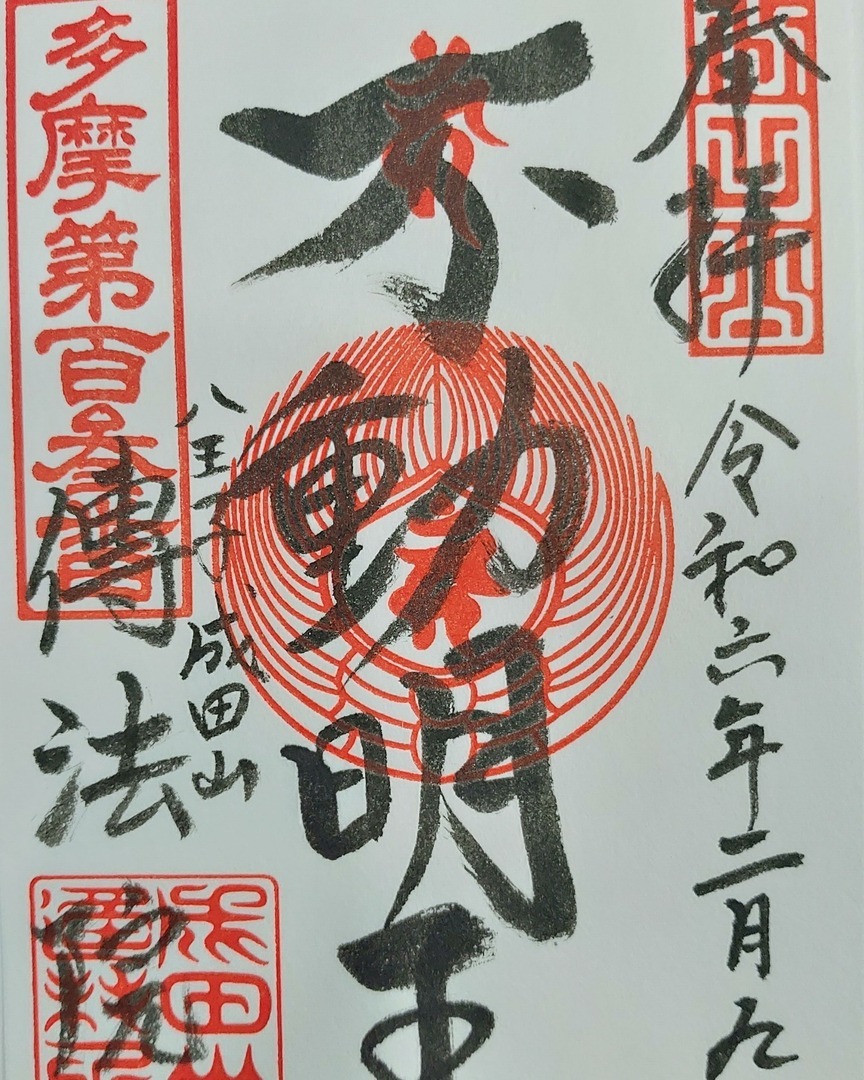 奉拝
令和六年二月九
不動明王
八王子
成田山
傳法院
多摩第百